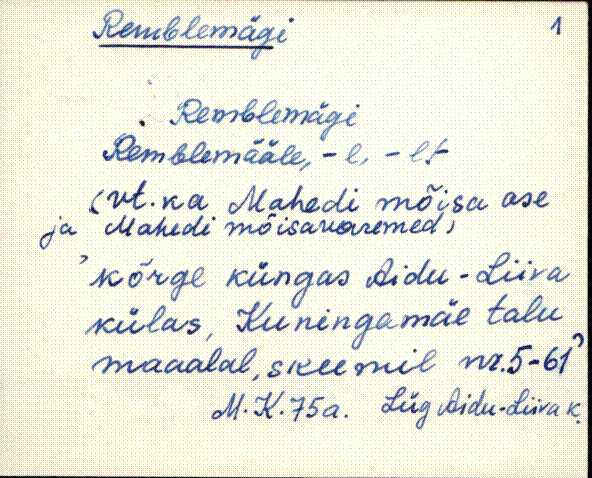 Remblemägi 1
Remblemägi
Remblemääle, -l, -lt
(vt. ka Mahedi mõisa ase
ja Mahedi mõisavaremed)
'kõrge küngas Aidu-Liiva
külas, Kuningamäe talu
maaalal, skeemil nr. 5-61'
M.K. 75a. Lüg Aidu-Liiva k.